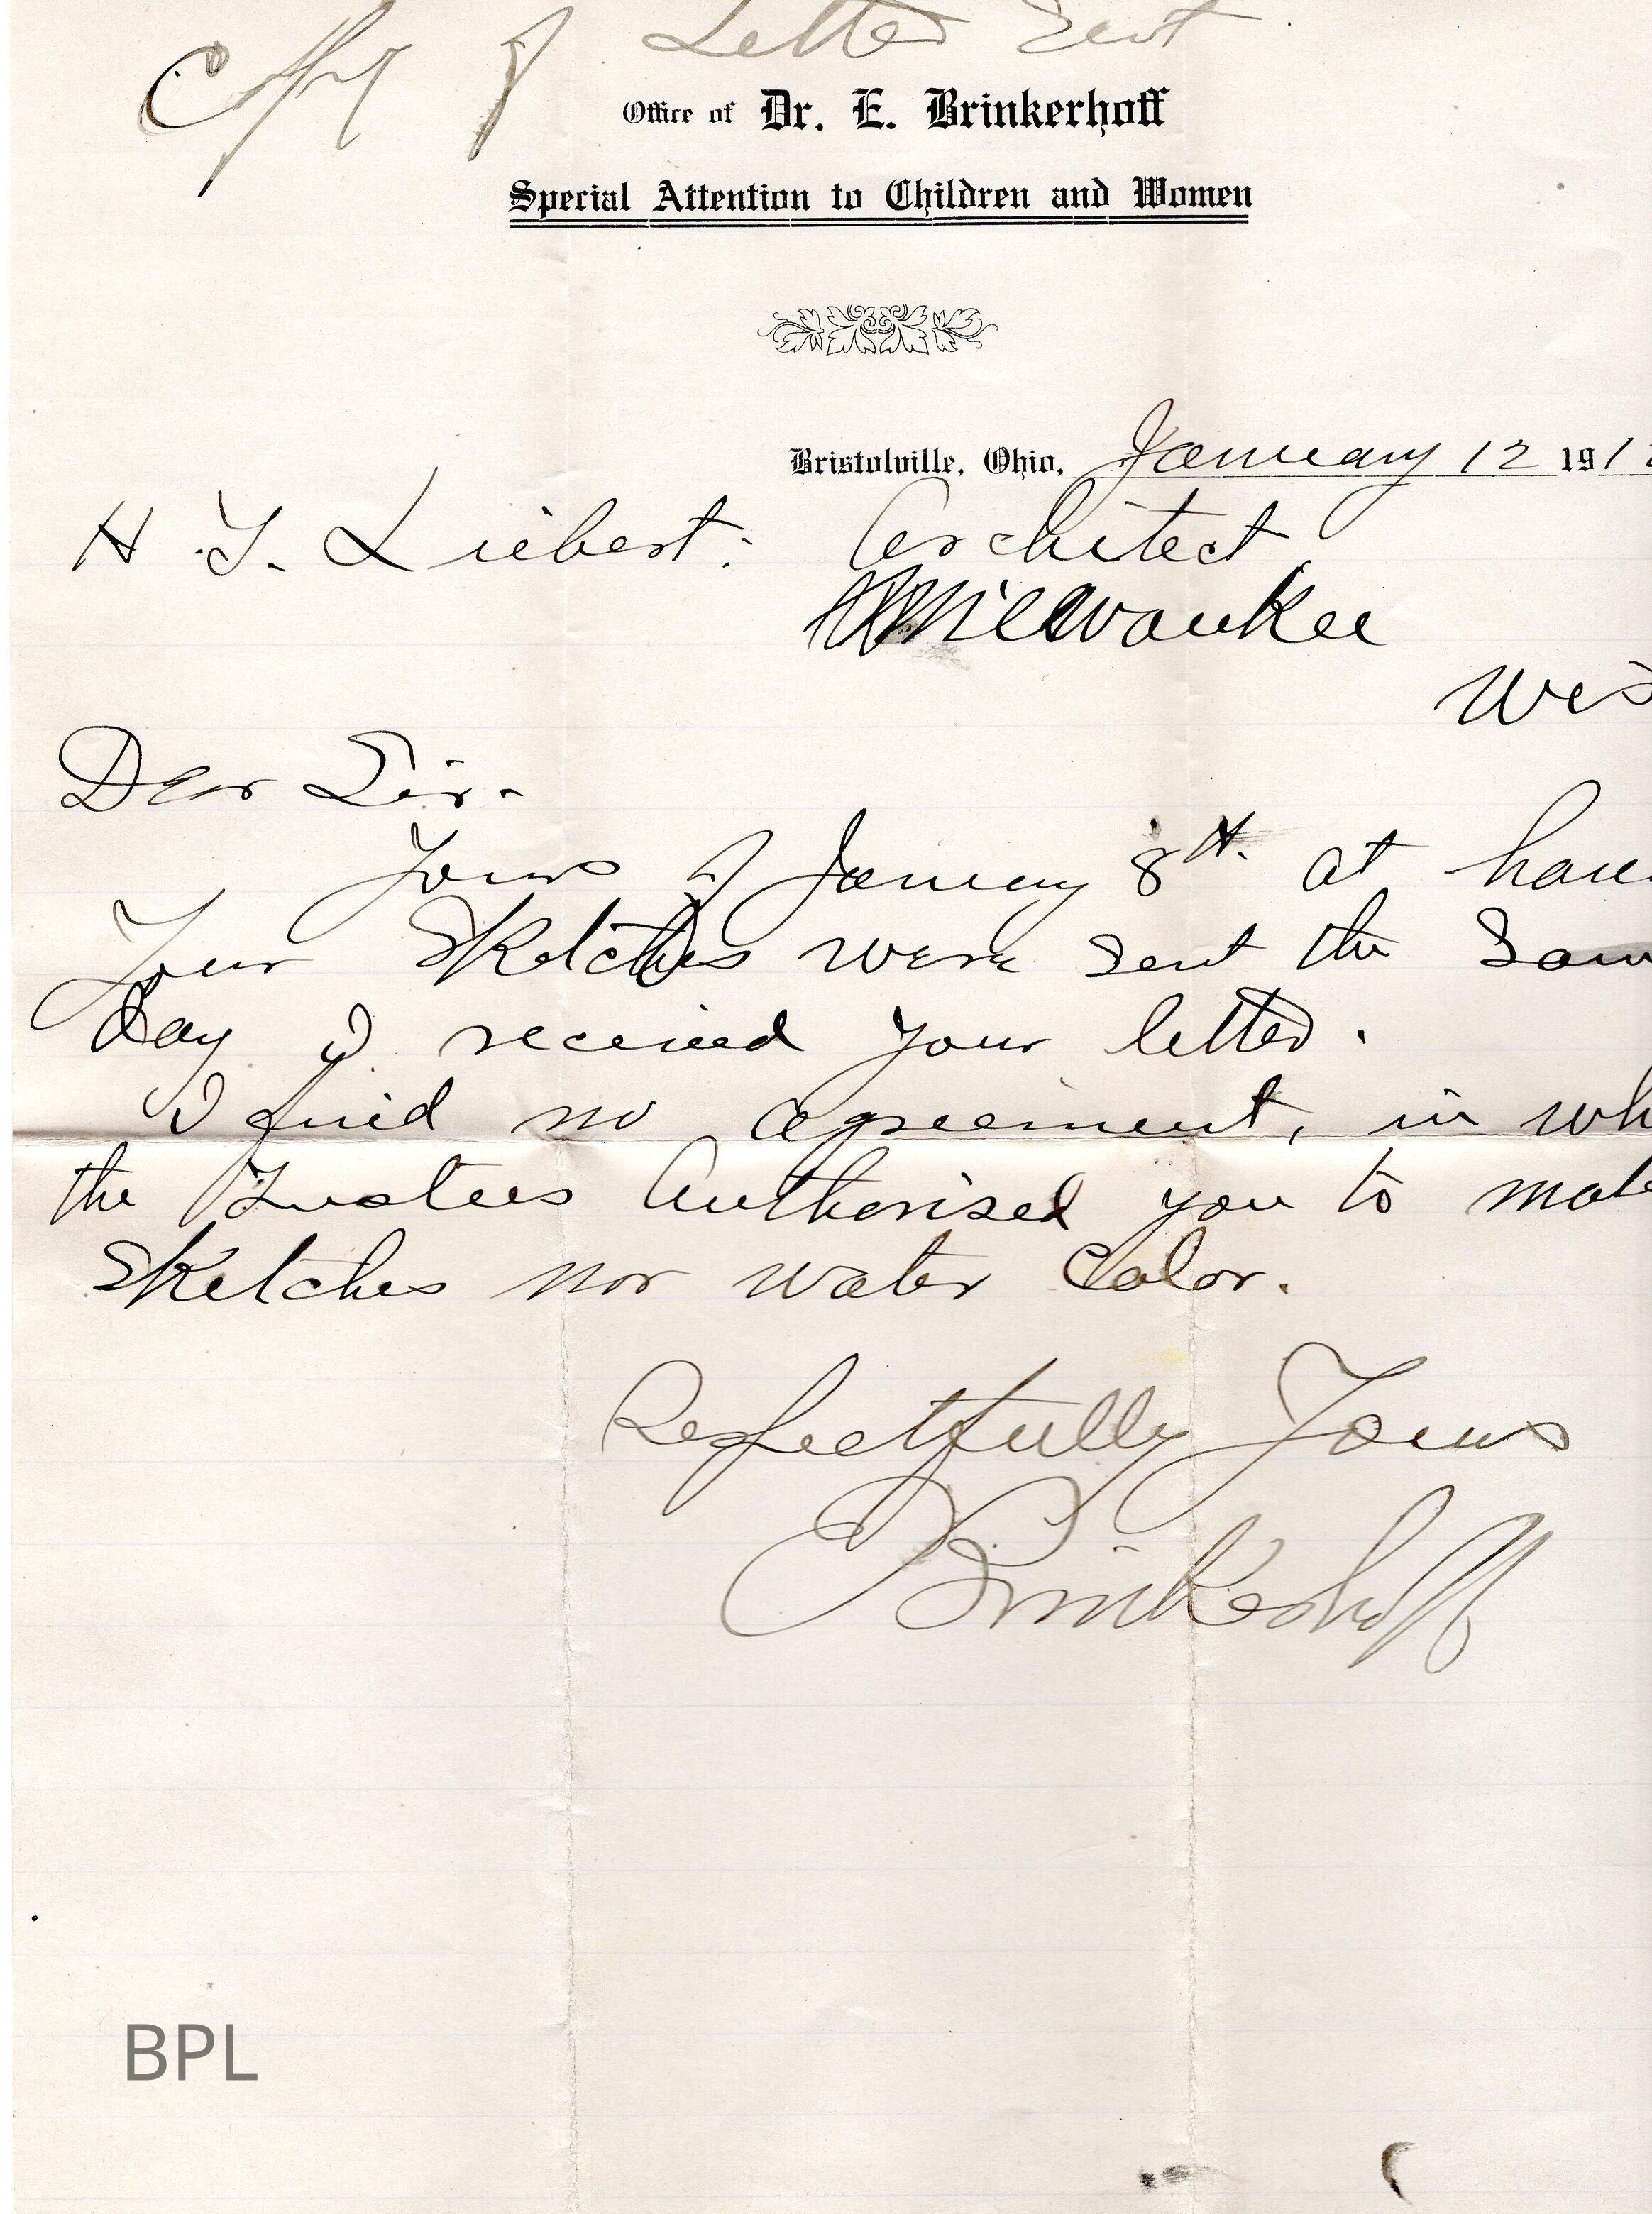 Copy of Letter Sent
Office of Dr. E. Brinkerhoff
Special Attention to Children and Women
Bristolville, Ohio, January 12 191
H. T. Liebert: Architect
Milwaukee
Wis
Dear Sir.
Yours of January 8th. at han
Your Sketches were Sent the Sam
Day I received your letter.
I find no agreement, in wh
the Trustees Authorised you to mak
Sketches nor water Color.
Respectfully Yours
E Brinkerhoff
BPL